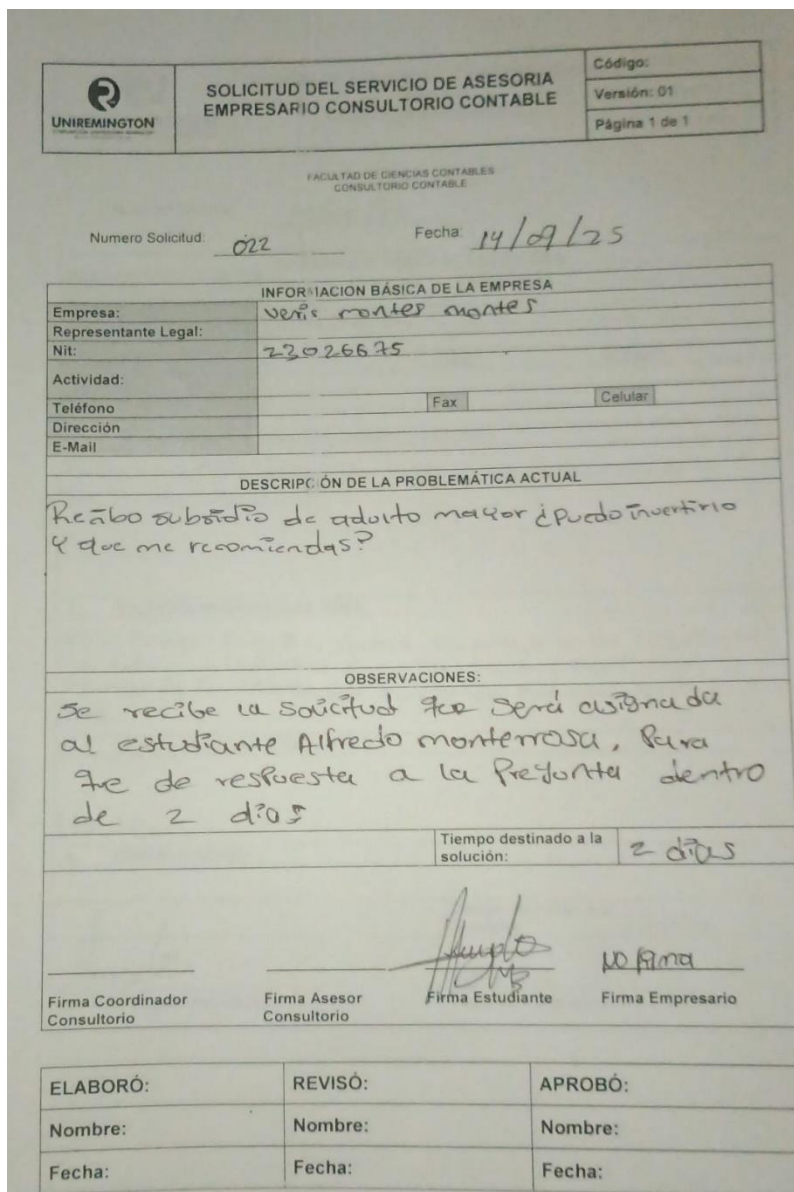 UNIREMINGTON
SOLICITUD DEL SERVICIO DE ASESORIA
EMPRESARIO CONSULTORIO CONTABLE
Código:
Versión: 01
Página 1 de 1
FACULTAD DE CIENCIAS CONTABLES
CONSULTORIO CONTABLE
Numero Solicitud: 022
Fecha: 14/09/25
INFORMACION BÁSICA DE LA EMPRESA
Empresa: montes montes
Representante Legal:
Nit: 23026675
Actividad:
Teléfono Fax Celular
Dirección
E-Mail
DESCRIPCIÓN DE LA PROBLEMÁTICA ACTUAL
Recibo subsidio de adulto mayor ¿puedo invertirlo
y que me recomiendas?
OBSERVACIONES:
se recibe la solicitud que será asignada
al estudiante Alfredo monterrosa, Para
que de respuesta a la Pregunta dentro
de 2 días
Tiempo destinado a la
solución: 2 días
NO firma
Firma Coordinador
Consultorio
Firma Asesor
Consultorio
Firma Estudiante
Firma Empresario
ELABORÓ: REVISÓ: APROBÓ:
Nombre: Nombre: Nombre:
Fecha: Fecha: Fecha: